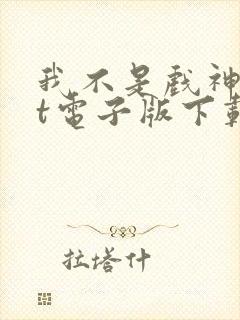 我不是戲神
t電子版下載
拉塔什